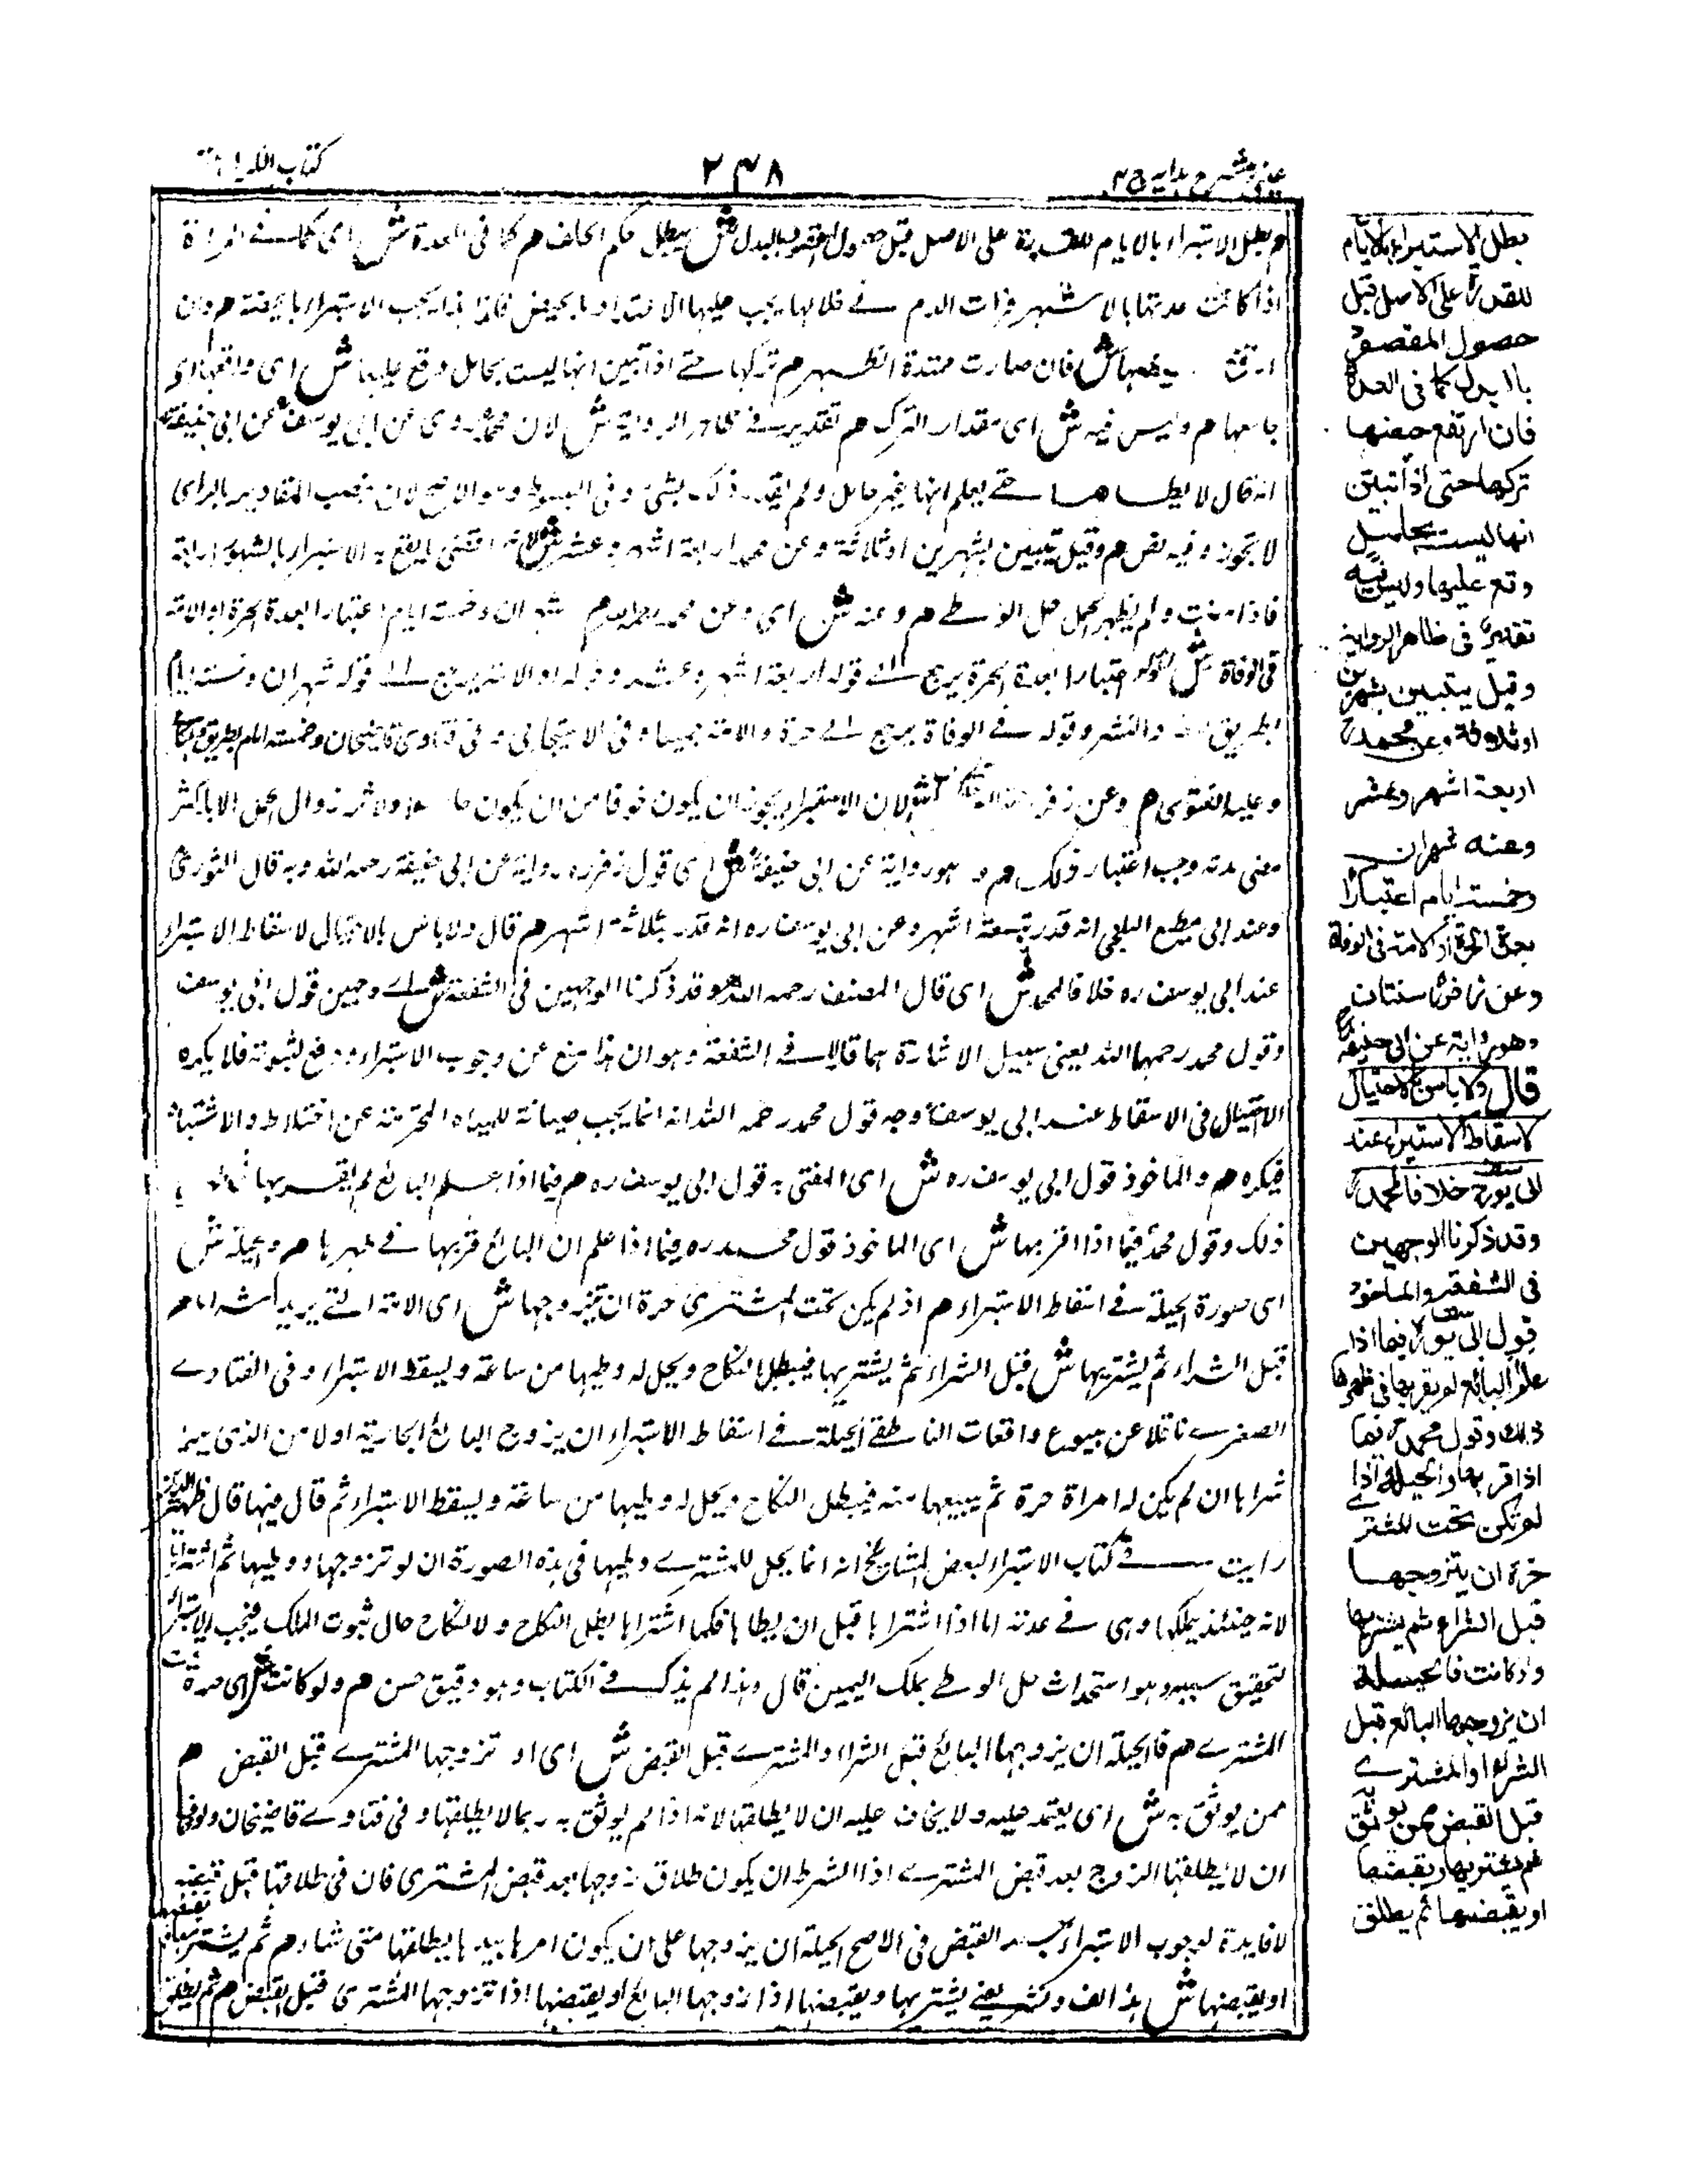 عيني شرح هدايه ج ٤
٢٤٨
كتاب الكراهية
م بطل الاستبراء بالايام للقدرة على الاصل قبل حصول المقصود بالبدل ش يبطل حكم الخلف م كما فى العدة ش اى كما فى المراة
اذا كانت عدتها بالاشهر فرات الدم فى خلالها يجب عليها الاعتداد بالحيض فاذا يجب الاستبراء بالحيضة م فان
ارتفع حيضها ش فان صارت ممتدة الطهر م تركها حتى اذا تبين انها ليست بحامل وقع عليها ش اى واقعها اى
جامعها م وليس فيه ش اى مقدار الترك م تقدير فى ظاهر الرواية ش لان محمدا روى عن ابى يوسف عن ابى حنيفة
انه قال لا يطاها حتى يعلم انها غير حامل ولم يقدر ذلك بشئ وفى المبسوط وهو الاصح لان نصب المقادير بالراى
لا يجوز وفيه نص م وقيل يتبين بشهرين او ثلاثة وعن محمد اربعة اشهر وعشر ش لانه اقصى ما يقع به الاستبراء بالشهور اربعة
فاذا مضت ولم يظهر الحمل حل الوطے م وعنه ش اى وعن محمد رحمه الله م شهران وخمسة ايام اعتبارا بعدة الحرة او الامة
فى الوفاة ش قوله اعتبارا بعدة الحرة يرجع الى قوله اربعة اشهر وعشر وقوله او الامة يرجع الى قوله شهران وخمسة ايام
بطريق اللف والنشر وقوله فى الوفاة يرجع الى حرة والامة جميعا وفى الاسبيجابى وفى فتاوى قاضيخان وخمسة ايام
وعليه الفتوى م وعن زفر سنتان ش لان الاستبراء يجوز ان يكون خوفا من ان يكون حاملا ولا ثمر زوال الحمل الا باكثر
معنى مدته وجب اعتبار ذلك م وهو رواية عن ابى حنيفة ش اى قول زفر ره رواية عن ابى حنيفة رحمه الله وبه قال الثورى
وعند ابى مطيع البلخى انه قدر بتسعة اشهر وعن ابى يوسف ره انه قدر بثلاثة اشهر م قال ولا باس بالاحتيال لاسقاط الاستبراء
عند ابى يوسف ره خلافا لمحمد ش اى قال المصنف رحمه الله م وقد ذكرنا الوجهين فى الشفعة ش اے وجهين قول ابى يوسف
وقول محمد رحمهما الله يعنى سبيل الاشارة هما قالا فى الشفعة وهو ان هذا منع عن وجوب الاستبراء ورفع لثبوته فلا يكره
الاحتيال فى الاسقاط عند ابى يوسف وجه قول محمد رحمه الله انه انما يجب صيانة للمياه المحترمة عن اختلاط والاشتباه
فيكره م والماخوذ قول ابى يوسف ره ش اى المفتى به قول ابى يوسف ره م فيما اذا علم البائع لم يقربها
ذلك وقول محمد فيما اذا اقربها ش اى الماخوذ قول محمد ره فيما اذا علم ان البائع قربها فى طهرها م والحيلة ش
اى صورة الحيلة فى اسقاط الاستبراء م اذ لم يكن تحت المشترى حرة ان يتزوجها ش اى الامة التے يريد شراها م
قبل الشراء ثم يشتريها ش قبل الشراء ثم يشتريها فيبطل النكاح ويحل له وطيها من ساعة ويسقط الاستبراء وفى الفتاوے
الصغرے ناقلا عن بيوع واقعات الناطفے الحيلة فى اسقاط الاستبراء ان يزوج البائع الجارية اولا من الذى يريد
شراها ان لم يكن له امراة حرة ثم يبيعها منه فيبطل النكاح ويحل له وطيها من ساعة ويسقط الاستبراء ثم قال فيها قال ظهير الدين
رايت فے كتاب الاستبراء لبعض المشايخ انه انما يحل للمشترے وطيها فى هذه الصورة ان لو تزوجها ووطيها ثم اشتراها
لانه حينئذ يملكها وهى فے عدته اما اذا اشتراها قبل ان يطاها فكما اشتراها بطل النكاح ولا نكاح حال ثبوت الملك فيجب الاستبراء
لتحقيق سببه وهو استحداث حل الوطے بملك اليمين قال وهذا لم يذكر فے الكتاب وهو دقيق حسن م ولو كانت ش اى حرة تحت
المشترے م فالحيلة ان يزوجها البائع قبل الشراء والمشترے قبل القبض ش اى او تزوجها المشترے قبل القبض م
ممن يوثق به ش اى يعتمد عليه ولا يخاف عليه ان لا يطلقها لانه اذا لم يوثق به ربما لا يطلقها وفى فتاوے قاضيخان ولو خاف
ان لا يطلقها الزوج بعد قبض المشترے اذا الشرط ان يكون طلاق زوجها بعد قبض المشترى فان فى طلاقها قبل قبضه
لا فايدة لوجوب الاستبراء بعد القبض فى الاصح الحيلة ان يزوجها على ان يكون امرها بيدها يطلقها متى شاء م ثم يشتريها ويقبضها
او يقبضها ش هذا لف ونشر يعنے يشتريها ويقبضها اذا زوجها البائع او يقبضها اذا تزوجها المشترى قبل القبض م ثم يطلق
بطل الاستبراء بالايام
للقدرة على الاصل قبل
حصول المقصود
بالبدل كما فى العدة
فان ارتفع حيضها
تركها حتى اذا تبين
انها ليست بحامل
وقع عليها وليس فيه
تقدير فى ظاهر الرواية
وقيل يتبين بشهرين
او ثلاثة وعن محمد
اربعة اشهر وعشر
وعنه شهران
وخمسة ايام اعتبارا
بعدة الحرة او الامة فى الوفاة
وعن زفر سنتان
وهو رواية عن ابى حنيفة
قال ولا باس بالاحتيال
لاسقاط الاستبراء عند
ابى يوسف خلافا لمحمد
وقد ذكرنا الوجهين
فى الشفعة والماخوذ
قول ابى يوسف فيما اذا
علم البائع لم يقربها فى طهرها
ذلك وقول محمد فيما
اذا قربها والحيلة اذا
لم تكن تحت المشترے
حرة ان يتزوجها
قبل الشراء ثم يشتريها
ولو كانت فالحيلة
ان يزوجها البائع قبل
الشراء او المشترے
قبل القبض ممن يوثق به
ثم يشتريها ويقبضها
او يقبضها ثم يطلق